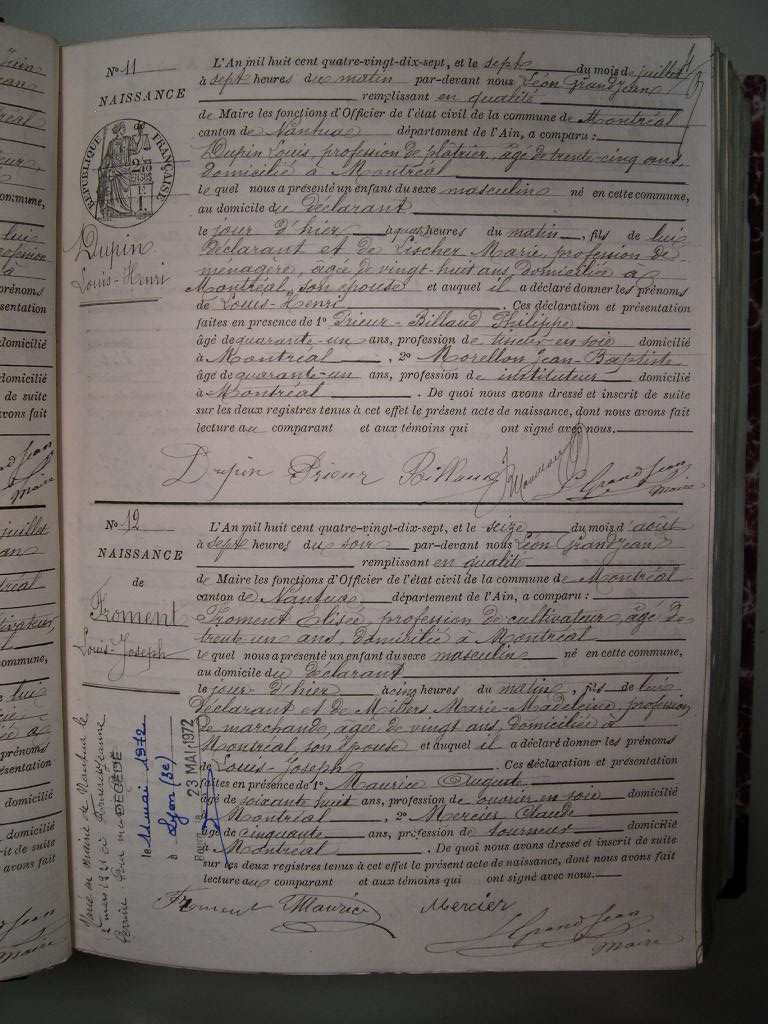 N° 11
NAISSANCE
RÉPUBLIQUE FRANÇAISE
Dupin
Louis-Henri
L'An mil huit cent quatre-vingt-dix-sept, et le sept du mois de juillet
à sept heures du matin par-devant nous Léon Grandjean
remplissant en qualité
de Maire les fonctions d'Officier de l'état civil de la commune de Montréal
canton de Nantua département de l'Ain, a comparu :
Dupin Louis, profession de plâtrier, âgé de trente-cinq ans
domicilié à Montréal
lequel nous a présenté un enfant du sexe masculin né en cette commune,
au domicile du déclarant
le jour d'hier à heures du matin, fils de lui
déclarant et de Lischer Marie, profession de
ménagère, âgée de vingt-huit ans domiciliée à
Montréal, son épouse et auquel il a déclaré donner les prénoms
de Louis-Henri . Ces déclaration et présentation
faites en présence de 1° Prieur-Billaud Philippe
âgé de quarante-un ans, profession de en soie domicilié
à Montréal , 2° Morellon Jean-Baptiste
âgé de quarante-un ans, profession de instituteur domicilié
à Montréal . De quoi nous avons dressé et inscrit de suite
sur les deux registres tenus à cet effet le présent acte de naissance, dont nous avons fait
lecture au comparant et aux témoins qui ont signé avec nous.
Dupin Prieur Billaud L. Grandjean
Maire
N° 12
NAISSANCE
de
Froment
Louis-Joseph
L'An mil huit cent quatre-vingt-dix-sept, et le seize du mois d'août
à sept heures du soir par-devant nous Léon Grandjean
remplissant en qualité
de Maire les fonctions d'Officier de l'état civil de la commune de Montréal
canton de Nantua département de l'Ain, a comparu :
Froment Elisée, profession de cultivateur, âgé de
trente un ans, domicilié à Montréal
lequel nous a présenté un enfant du sexe masculin né en cette commune,
au domicile du déclarant
le jour d'hier à cinq heures du matin, fils de lui
déclarant et de Marie-Madeleine, profession
de marchande, âgée de vingt ans, domiciliée à
Montréal, son épouse et auquel il a déclaré donner les prénoms
de Louis-Joseph . Ces déclaration et présentation
faites en présence de 1° Maurice Auguste
âgé de soixante huit ans, profession de ouvrier en soie domicilié
à Montréal , 2° Mercier Claude
âgé de cinquante ans, profession de tourneur domicilié
à Montréal . De quoi nous avons dressé et inscrit de suite
sur les deux registres tenus à cet effet le présent acte de naissance, dont nous avons fait
lecture au comparant et aux témoins qui ont signé avec nous.
Froment Maurice Mercier
L. Grandjean
Maire
Marié en mairie de Nantua le
2 mars 1921 à Jeanne
DÉCÉDÉ
le 11 mai 1972
à Lyon (3e)
23 MAI 1972